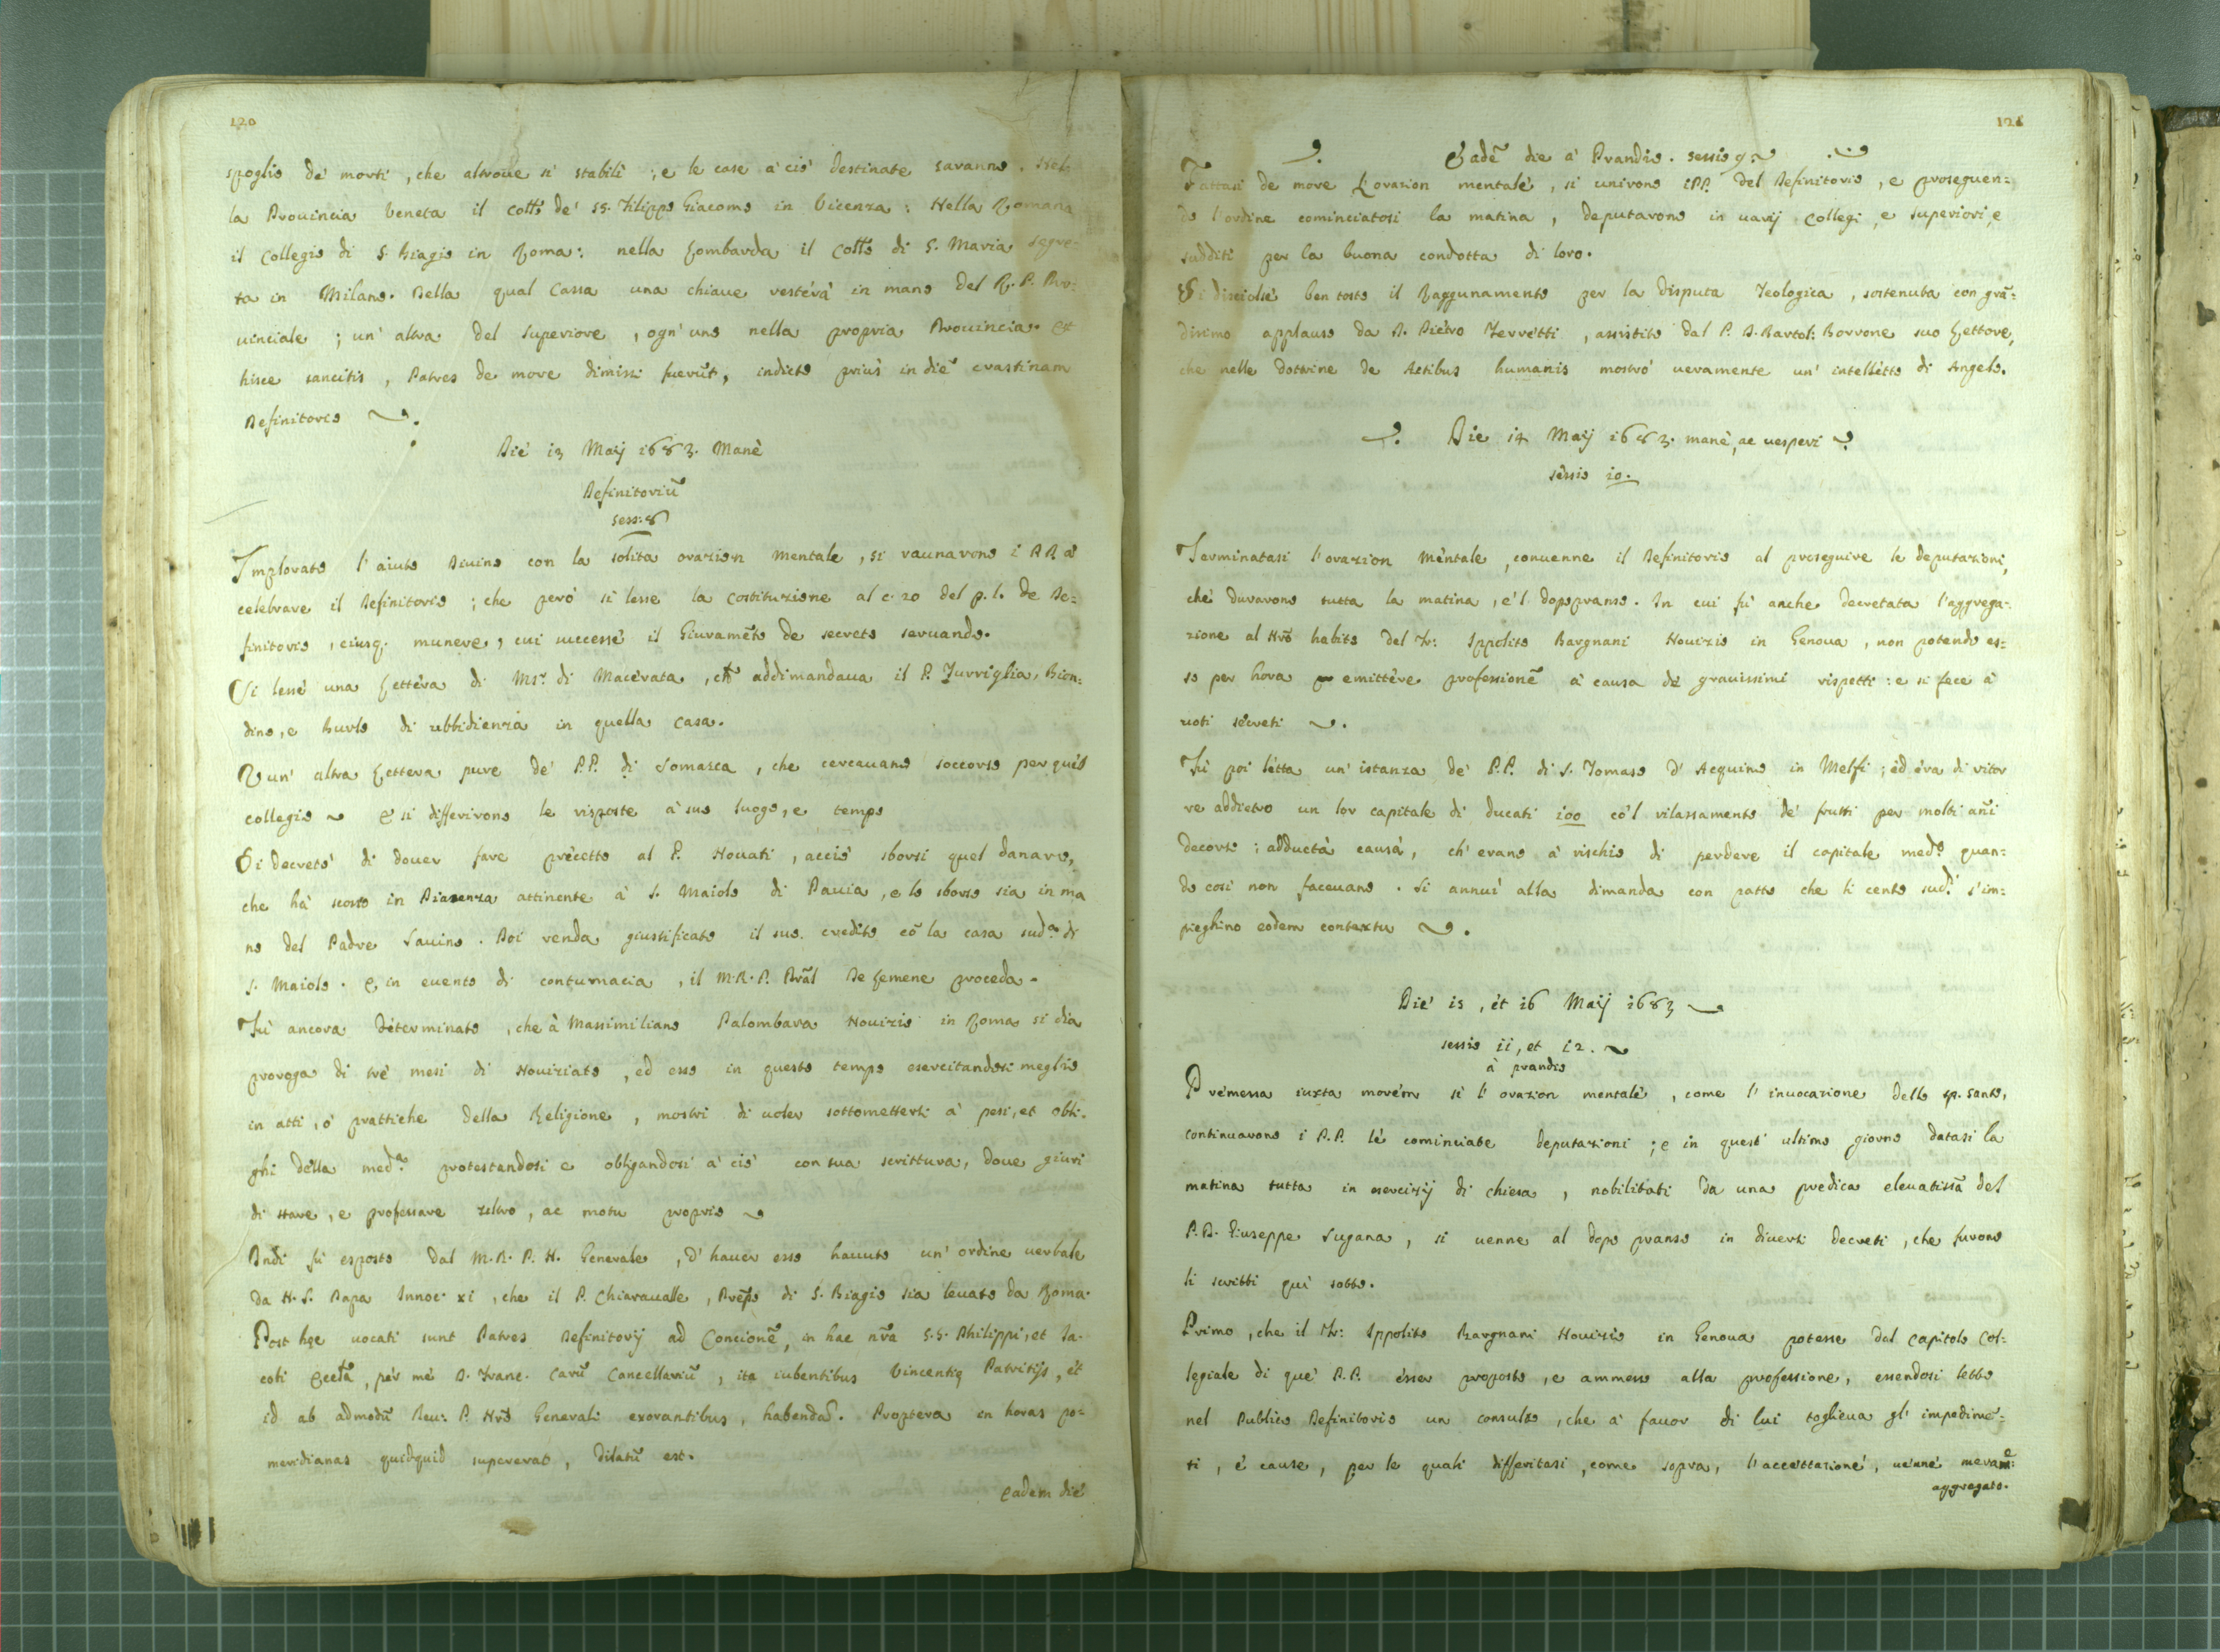 120
spoglio de' morti, che altroue si stabilì; e le case a' ciò destinate saranno. Nel-
la Prouincia Veneta il Coll.o de' SS. Filippo Giacomo in Vicenza: Nella Romana
il Collegio di S. Biagio in Roma: nella Lombarda il Coll.o di S. Maria Segre-
ta in Milano. Della qual Cassa una chiaue resterà in mano del R. P. Pro-
uinciale; un' altra del Superiore, ogn' uno nella propria Prouincia. Et
hisce sancitis, Patres de more dimissi fuerũt, indicto prius in diẽ crastinam
Definitorio
Die 13 Maij 1683. Manè
Definitoriũ
Sess: 8
Implorato l' aiuto Diuino con la solita orazion mentale, si raunarono i PP. à
celebrare il Definitorio; che però si lesse la Costituzione al c. 20 del p. l. de De-
finitorio, eiusq. munere, cui successe il Giuramẽto de secreto seruando.
Si lesse una Lettera di Ms.r di Macerata, che addimandaua il P. Turriglia, Bion-
dino, e Burlo di ubbidienza in quella Casa.
E un' altra Lettera pure de' P.P. di Somasca, che cercauano soccorso per quel
collegio e si differirono le risposte à suo luogo, e tempo
Si decretò di douer fare precetto al P. Nouati, acciò sborsi quel danaro,
che hà scosso in Piazenza attinente à S. Maiolo di Pauia, e lo sborso sia in ma
no del Padre Sauino. Poi renda giustificato il suo credito cõ la casa sud.a di
S. Maiolo. E in euento di contumacia, il M.R.P. Prãl De Lemene proceda.
Fù ancora determinato, che à Massimiliano Palombara Nouizio in Roma si dia
proroga di trè mesi di Nouiziato, ed esso in questo tempo esercitandosi meglio
in atti, ò prattiche della Religione, mostri di uoler sottomettersi à pesi, et obli-
ghi della med.a protestandosi e obligandosi à ciò con sua scrittura, doue giuri
di stare, e professare ultrò, ac motu proprio
Indi fù esposto dal M.R.P.N. Generale, d' hauer esso hauuto un' ordine uerbale
da N.S. Papa Innoc. XI, che il P. Chiaraualle, Prep̃o di S. Biagio sia leuato da Roma.
Post hęc uocati sunt Patres Definitorij ad Concionẽ, in hac nr̃a S.S. Philippi, et Ia-
cobi Eccl.a, per me D. Franc. Carũ Cancellariũ, ita iubentibus Vincentię Patritijs, et
id ab admodũ Reu: P. Nr̃o Generali exorantibus, habendã. Proptera in horas po-
meridianas quidquid supererat, dilatũ est.
Eadem die
121
Eadẽ die à Prandio. Sessio 9
Fattasi de more l'orazion mentale, si unirono i PP. del Definitorio, e proseguen-
do l'ordine cominciatosi la matina, deputarono in uarij Collegi, e superiori, e
sudditi per la buona condotta di loro.
Si disciolse ben tosto il Raggunamento per la Disputa Teologica, sostenuta con grã-
dissimo applauso da D. Pietro Ferretti, assistito dal P. D. Bartol: Borrone suo Lettore,
che nelle dottrine de Actibus humanis mostrò ueramente un' intelletto di Angelo.
Die 14 Maij 1683. manè, ac uesperi
Sessio 10.
Terminatasi l'orazion mentale, conuenne il Definitorio al proseguire le deputazioni,
che durarono tutta la matina, e'l dopopranso. In cui fù anche decretata l'aggrega-
zione al Nr̃o habito del Fr: Ippolito Bargnani Nouizio in Genoua, non potendo es-
so per hora emittere professionẽ à causa de' grauissimi rispetti: e si fece à
uoti secreti
Fù poi letta un' istanza de' P.P. di S. Tomaso d' Acquino in Melfi; ed era di ritor
re addietro un lor capitale di ducati 100 cõ'l rilassamento de' frutti per molti añi
decorsi: adducta causa, ch' erano à rischio di perdere il capitale med.o quan-
do così non faceuano. Si annuì alla dimanda con patto che li cento sud.i s'im-
pieghino eodem contextu
Die 15, et 16 Maij 1683
Sessio 11, et 12.
à prandio
Premessa iuxta morem sì l' orazion mentale, come l' inuocazione dello Sp. Santo,
continuarono i P.P. le cominciate deputazioni; e in quest' ultimo giorno datasi la
matina tutta in esercizij di chiesa, nobilitati da una predica eleuatiss̃a del
P.D. Giuseppe Sugana, si uenne al dopo pranso in diuersi decreti, che furono
li scritti quì sotto.
Primo, che il Fr: Ippolito Bargnani Nouizio in Genoua potesse dal Capitolo Col-
legiale di que' P.P. esser proposto, e ammesso alla professione, essendosi letto
nel Publico Definitorio un consulto, che à fauor di lui toglieua gl' impedimẽ-
ti, e cause, per le quali differitasi, come sopra, l'accettazione, uenne meram.e
aggregato.